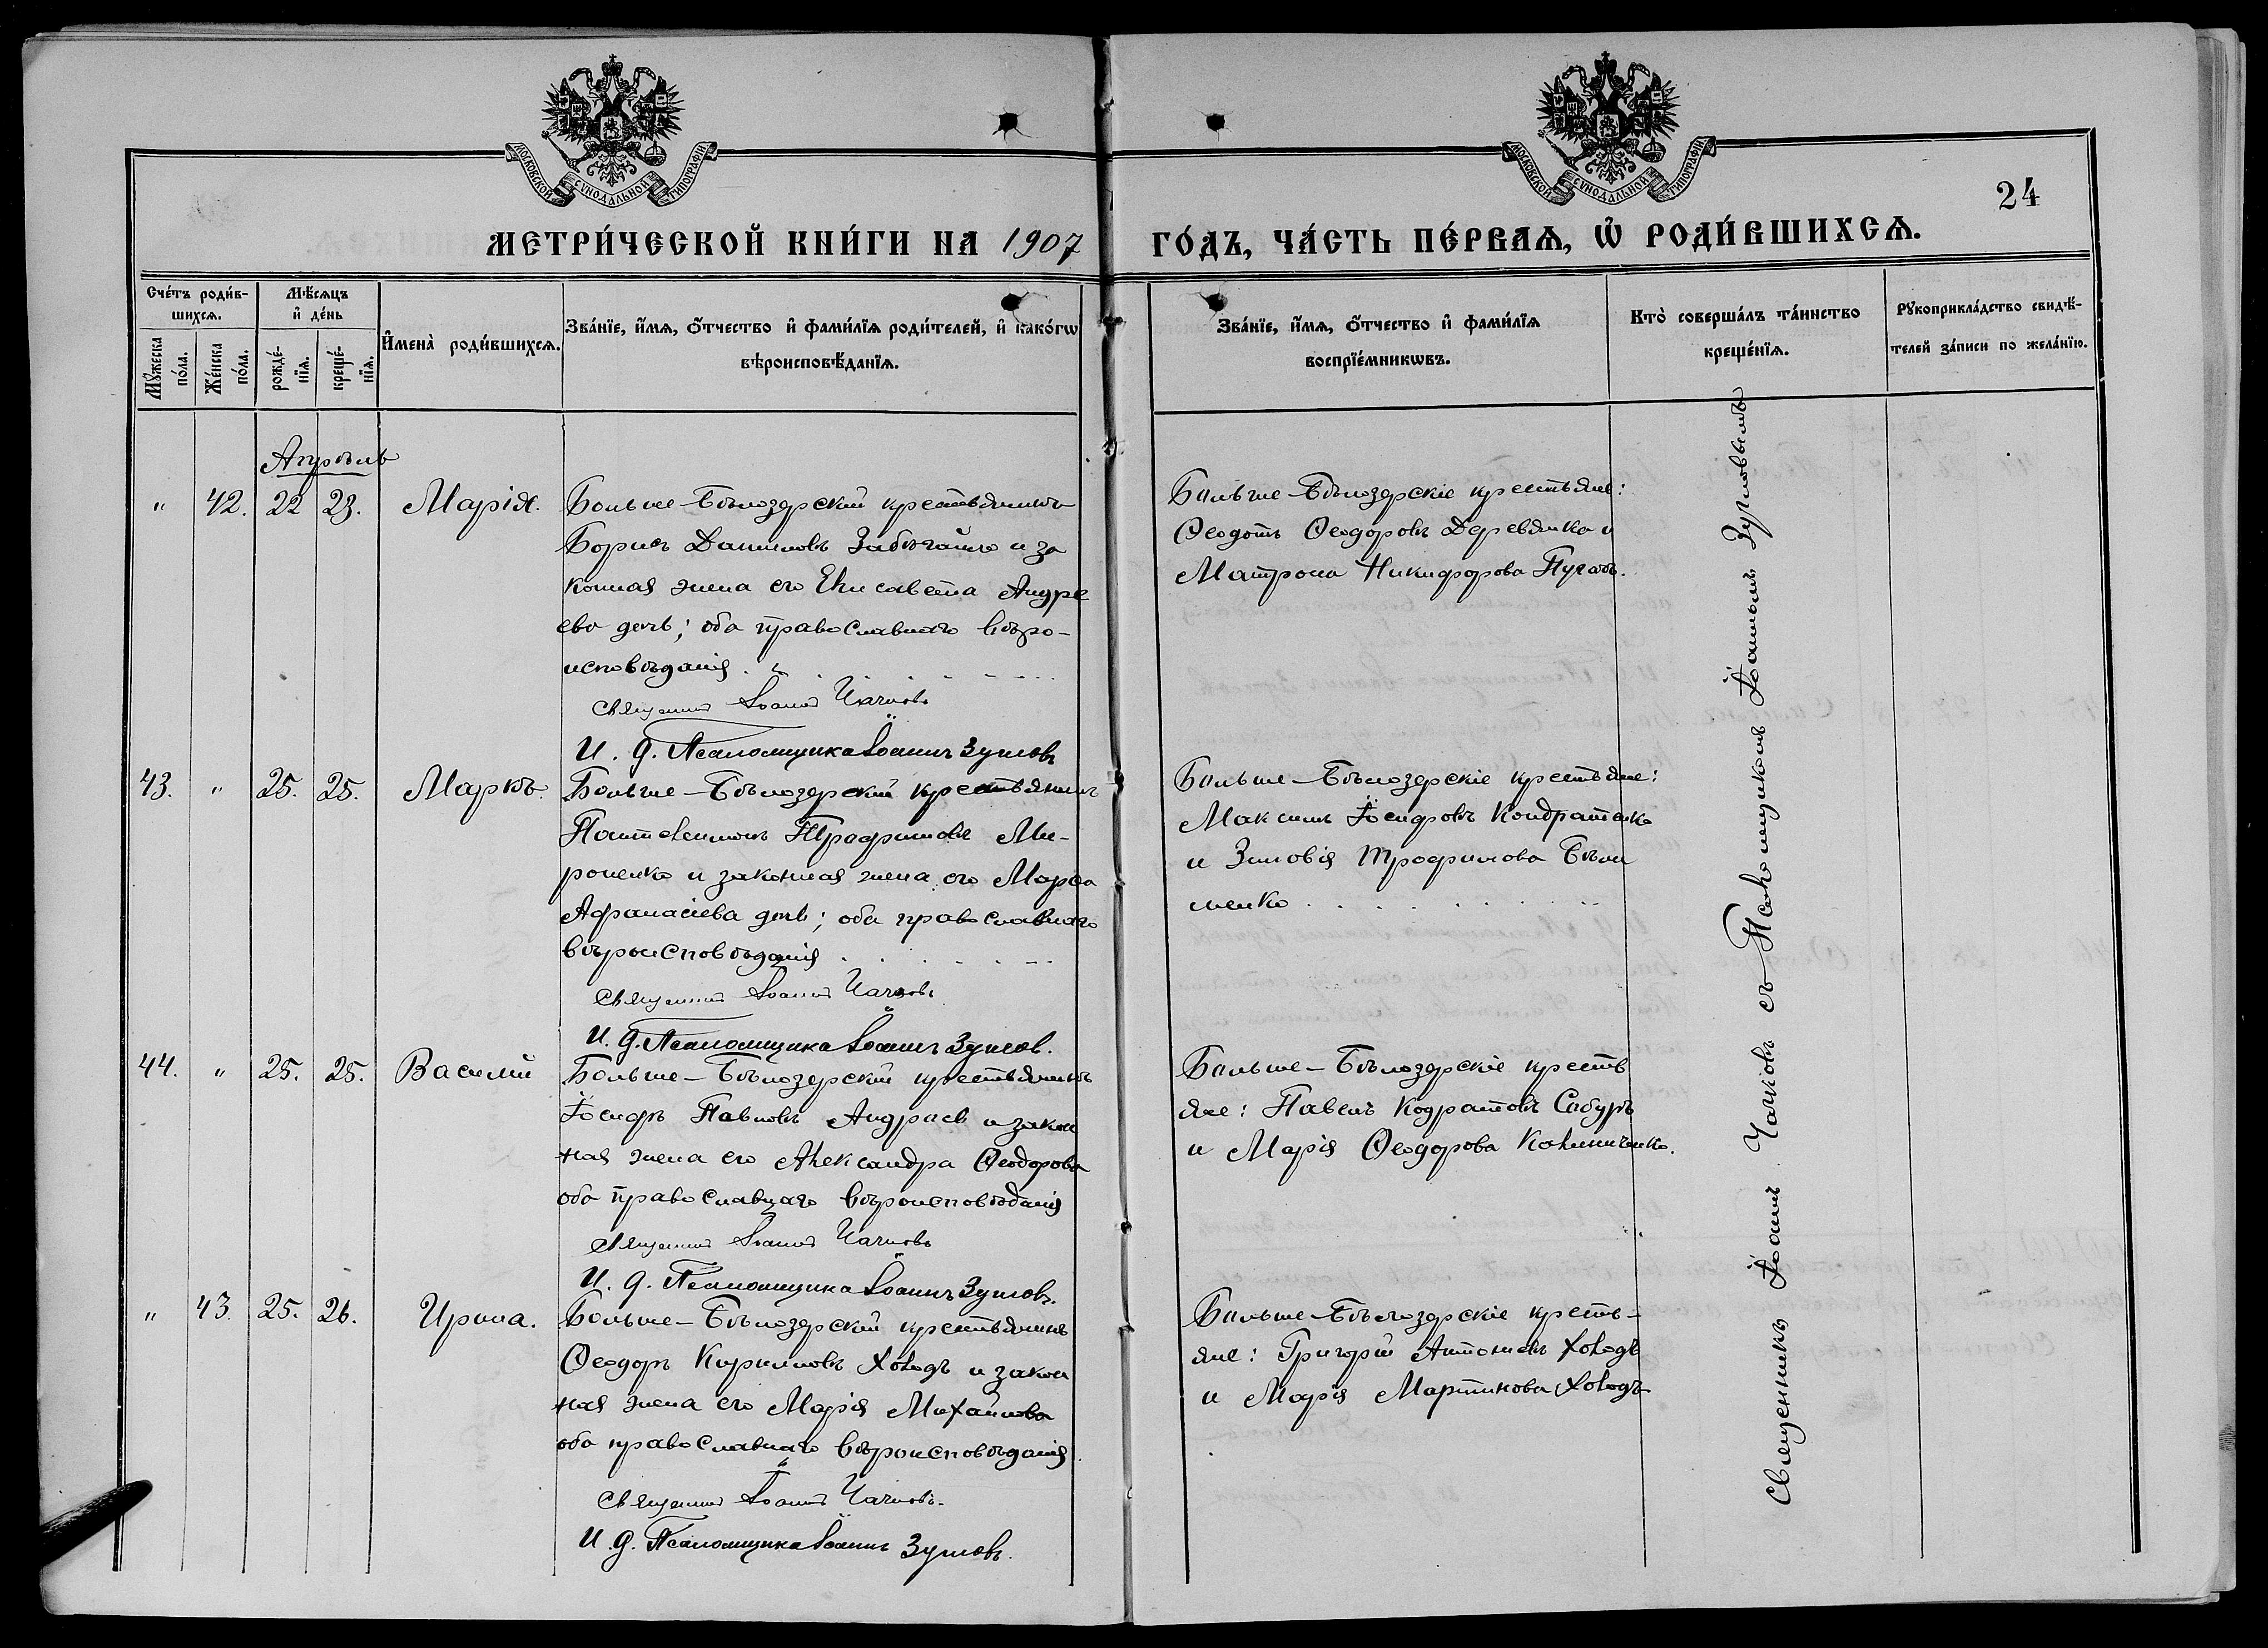 МОСКОВСКОЙ СѴНОДАЛЬНОЙ ТИПОГРАФІИ
МОСКОВСКОЙ СѴНОДАЛЬНОЙ ТИПОГРАФІИ
24
МЕТРИ́ЧЕСКОЙ КНИ́ГИ НА 1907 ГО́ДЪ, ЧА́СТЬ ПЕ́РВАѦ, Ѡ҆ РОДИ́ВШИХСѦ.
Сче́тъ роди́в-
шихсѧ.
Мꙋ́жеска по́ла.
Же́нска по́ла.
Мѣ́сѧцъ
и҆ де́нь
рожде́-
нїѧ.
креще́-
нїѧ.
И҆мена̀ роди́вшихсѧ.
Зва́нїе, и҆́мѧ, ѻ҆́тчество и҆ фами́лїѧ роди́телей, и҆ како́гѡ
вѣроисповѣ́данїѧ.
Зва́нїе, и҆́мѧ, ѻ҆́тчество и҆ фами́лїѧ
воспрїе́мникѡвъ.
Кто̀ соверша́лъ та́инство
креще́нїѧ.
Рꙋкоприкла́дство свидѣ́-
телей за́писи по жела́нїю.
Апрѣль
" 42. 22 23. Марія.
Больше-Бѣлозерскій крестьянинъ
Борисъ Даниловъ Забигайло и за
конная жена его Елисавета Андре
ева дочь; оба православнаго вѣро-
исповѣданія.
Священникъ Іоаннъ Чачковъ
И. д. Псаломщика Іоаннъ Зуиловъ
Больше-Бѣлозерскіе крестьяне:
Ѳеодотъ Ѳеодоровъ Деревянко и
Матрона Никифорова Пугачъ.
43. " 25. 25. Маркъ.
Больше-Бѣлозерскій крестьянинъ
Пантелеимонъ Трофимовъ Ми-
роненко и законная жена его Марѳа
Афанасіева дочь; оба православнаго
вѣроисповѣданія
Священникъ Іоаннъ Чачковъ
И. д. Псаломщика Іоаннъ Зуиловъ.
Больше-Бѣлозерскіе крестьяне:
Максимъ Іосифовъ Кондратенко
и Зиновія Трофимова
менко
44. " 25. 25. Василій
Больше-Бѣлозерскій крестьянинъ
Іосифъ Павловъ и закон
ная жена его Александра Ѳеодорова
оба православнаго вѣроисповѣданія
Священникъ Іоаннъ Чачковъ
И. д. Псаломщика Іоаннъ Зуиловъ.
Больше-Бѣлозерскіе кресть
яне: Павелъ Кодратовъ Сабуръ
и Марія Ѳеодорова Калиниченко.
" 43. 25. 26. Ирина.
Больше-Бѣлозерскій крестьянинъ
Ѳеодоръ Кирилловъ Холодъ и закон
ная жена его Марія Михайлова
оба православнаго вѣроисповѣданія.
Священникъ Іоаннъ Чачковъ.
И. д. Псаломщика Іоаннъ Зуиловъ.
Больше-Бѣлозерскіе кресть-
яне: Григорій Антоновъ Холодъ
и Марія Мартинова Холодъ
Священникъ Іоаннъ Чачковъ съ Псаломщикомъ Іоанномъ Зуиловымъ